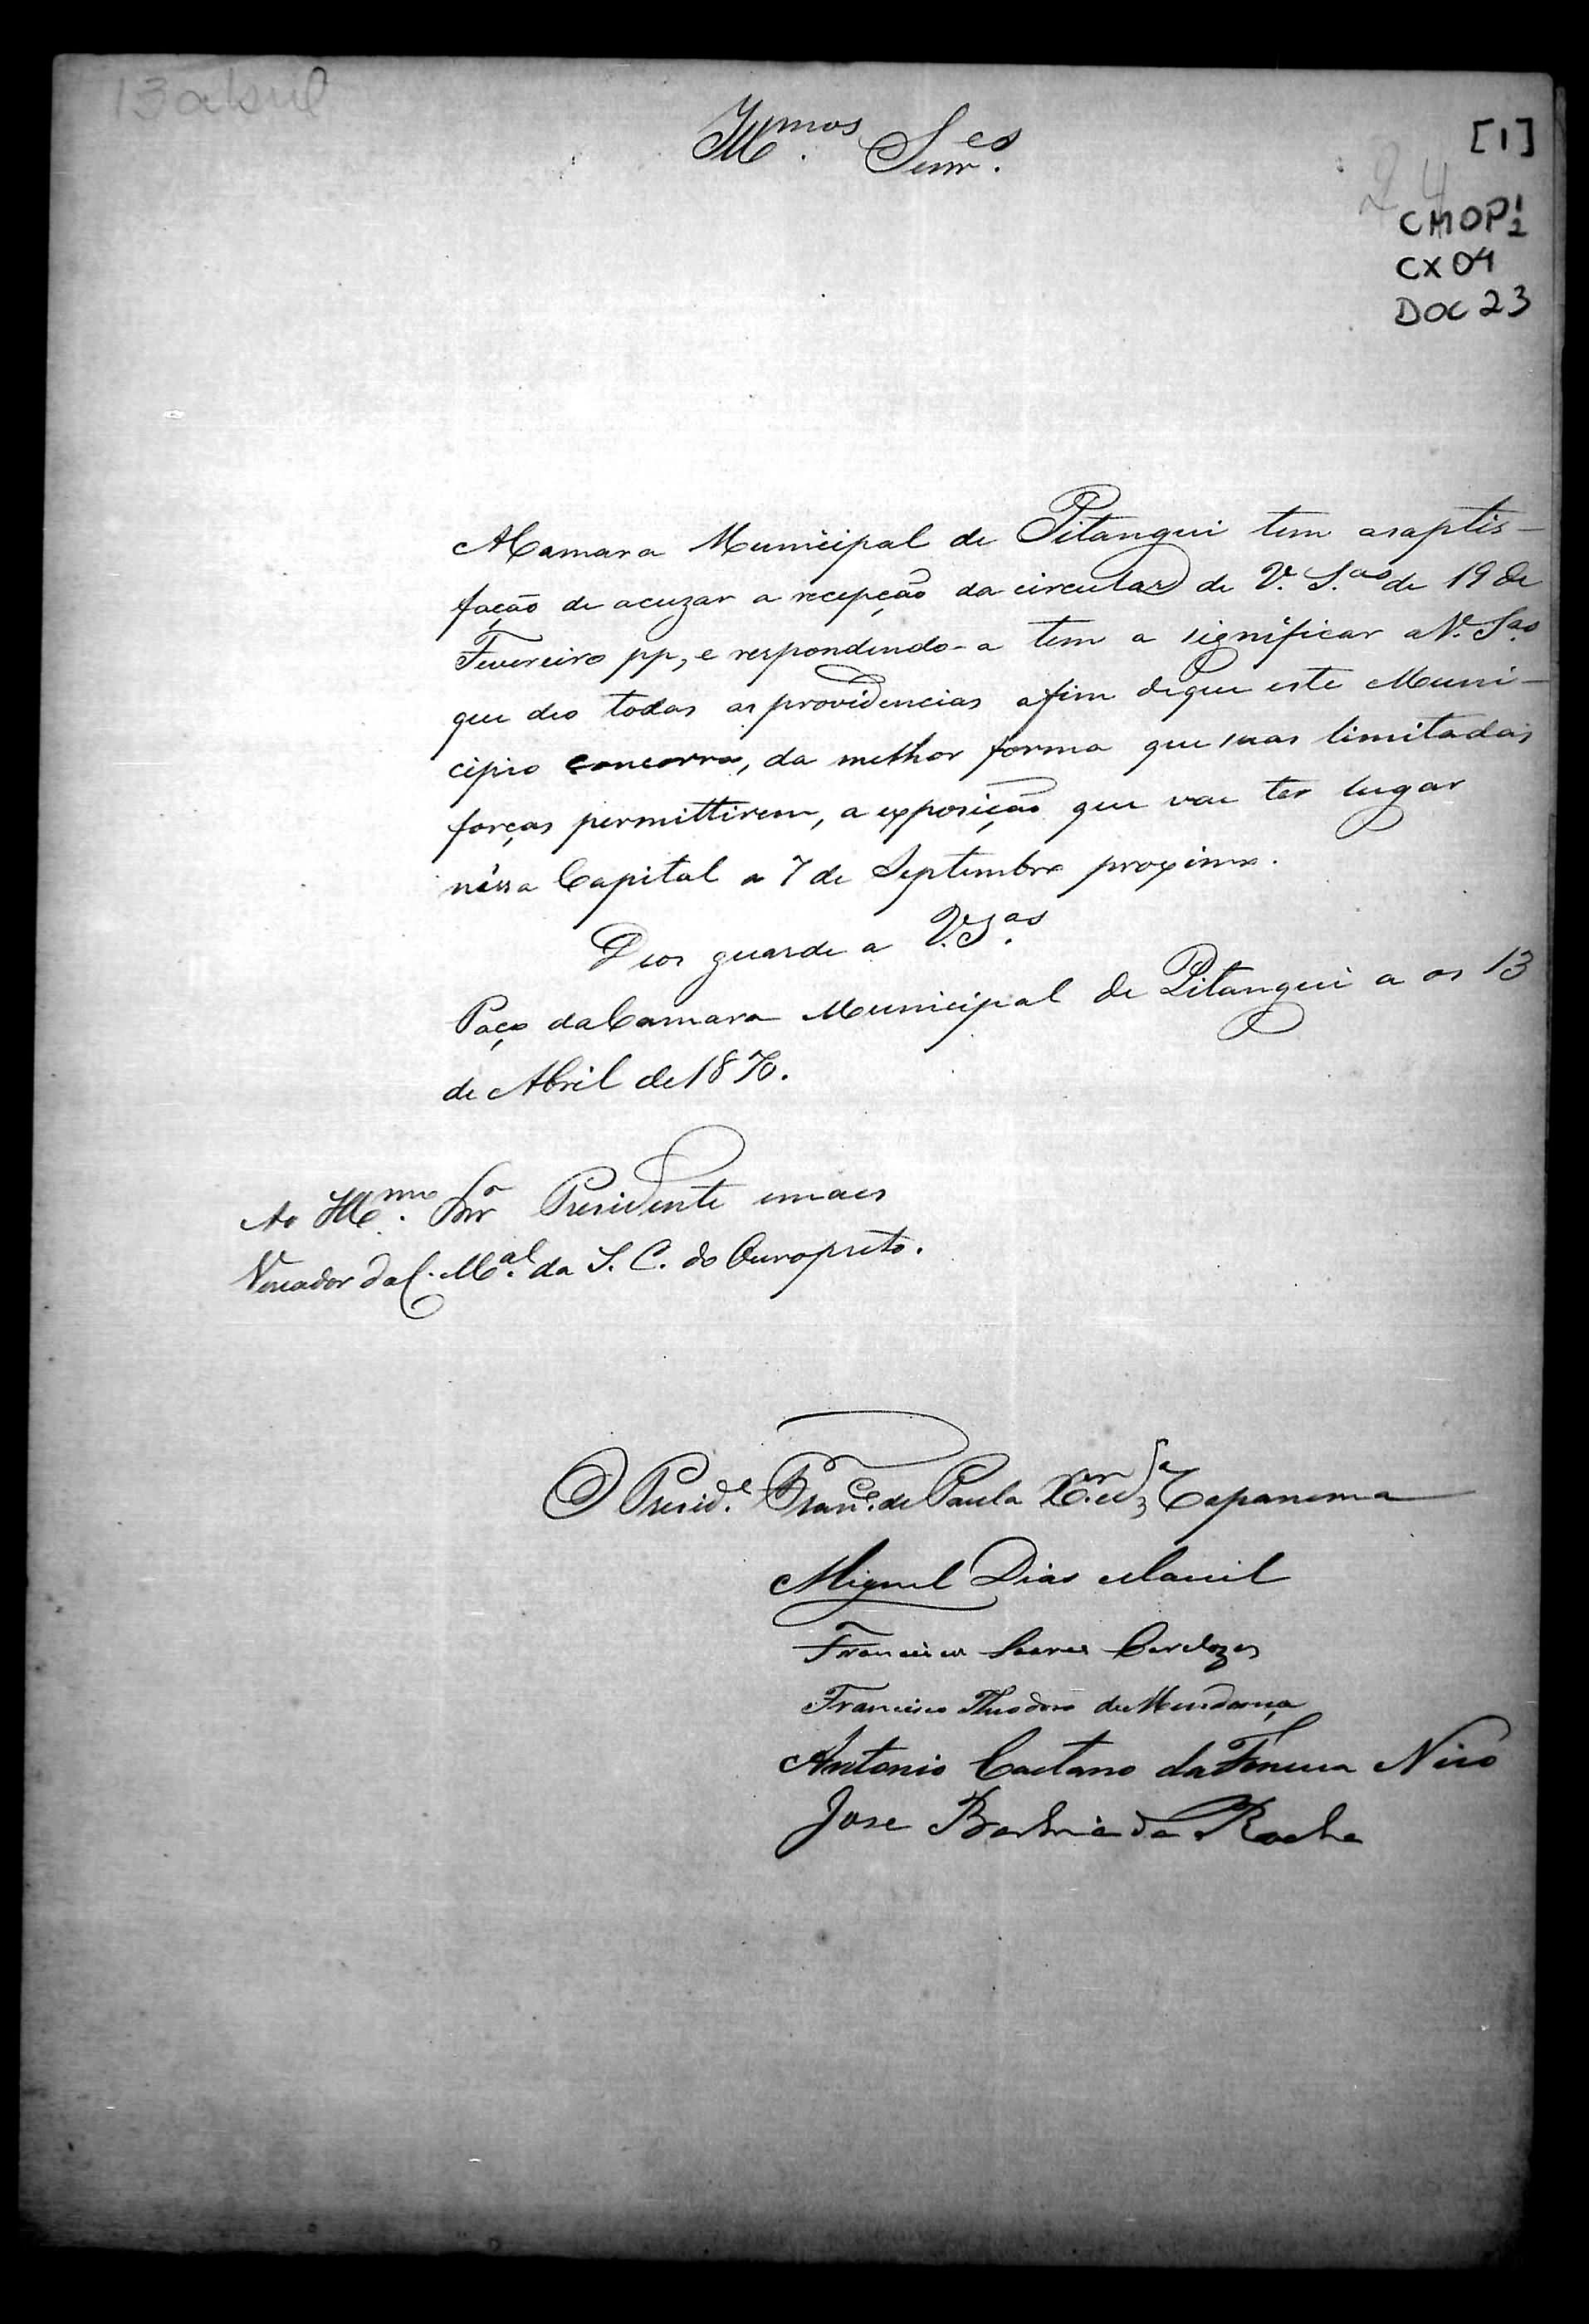 13 abril
Illmos. Senres.
[1]
24
CMOP 1/2
CX 04
DOC 23
A Camara Municipal de Pitangui tem asaptis-
fação de acuzar a recepção da circular de V. S.as de 19 de
Fevereiro pp, e respondendo-a tem a significar a V. S.as
que deo todas as providencias afim deque este Muni-
cipio concorra, da melhor forma que suas limitadas
forças permittirem, a exposição que vai ter lugar
néssa Capital a 7 de Septembro proximo.
Deos guarde a V. S.as
Paço da Camara Municipal de Pitangui a os 13
de Abril de 1870.
Ao Illmo. Snr. Presidente emaes
Vereador da C. M.al da I. C. do Ouropreto.
O Presid.e Franc.co de Paula X.er de Sz.a Capanema
Miguel Dias Maciel
Francisco Soares Cardozo
Francisco Theodoro de Mendonça
Antonio Caetano da Fonseca
Jose Barboza da Rocha